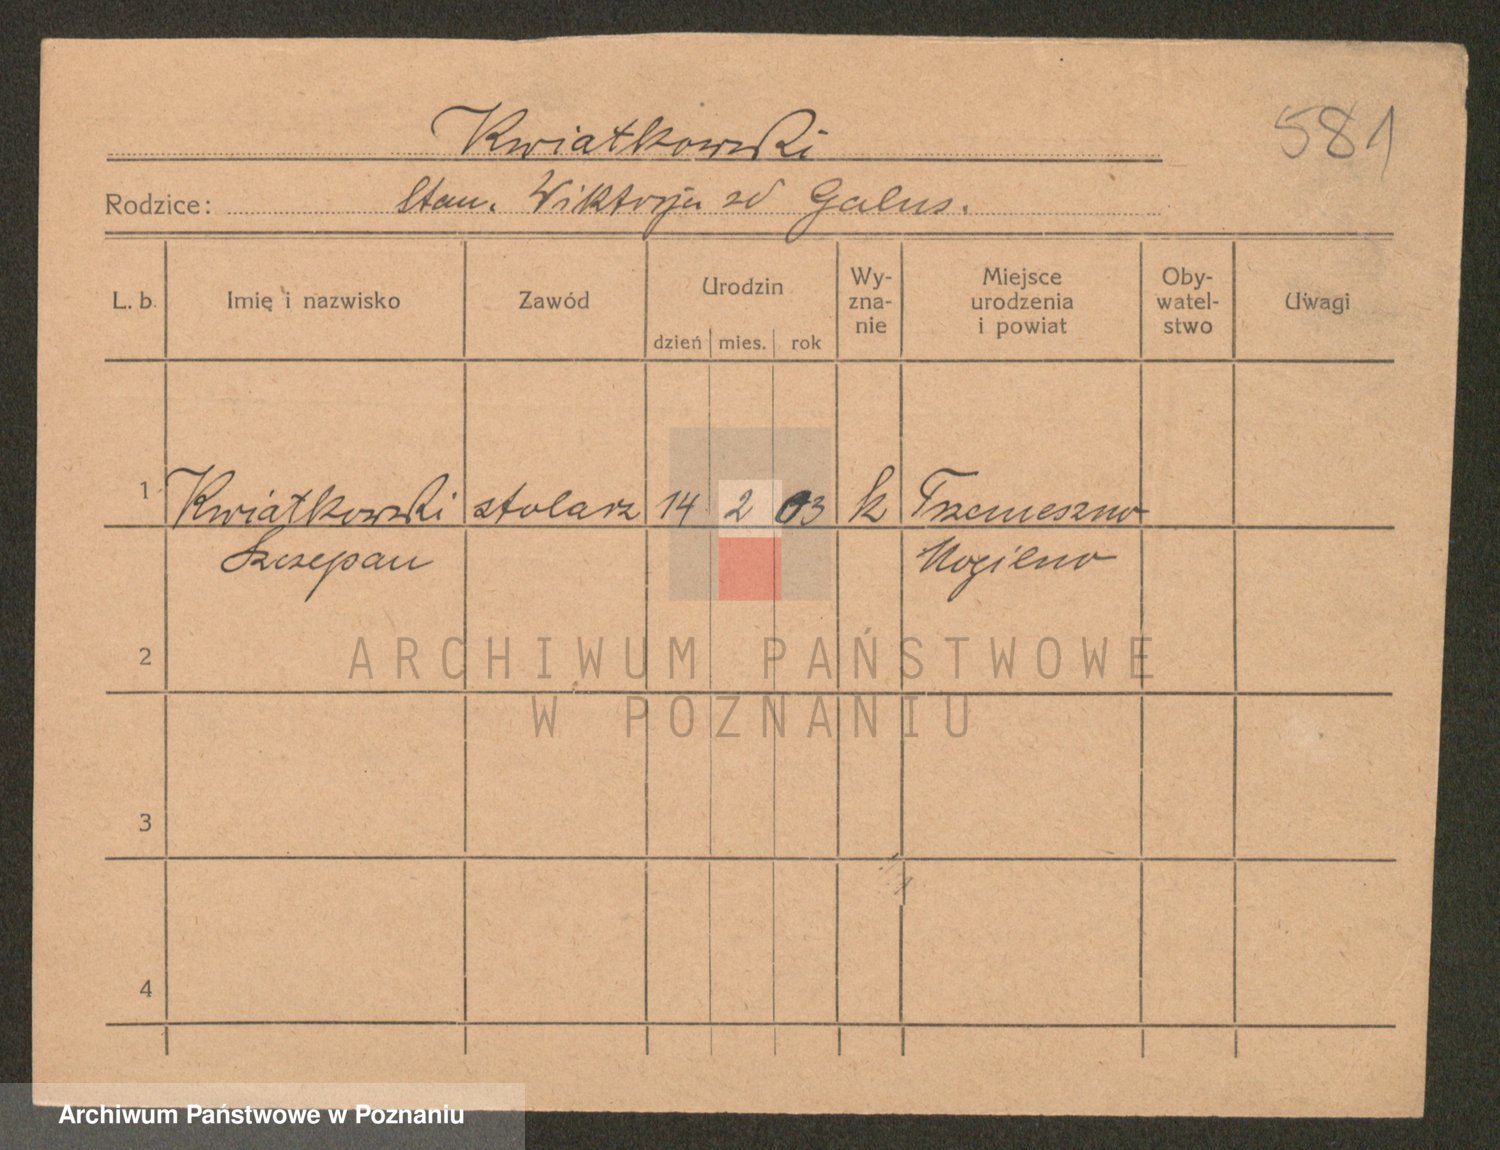 Kwiatkowski
581
Rodzice: Stan. Wiktorja zd Galus.
L. b. Imię i nazwisko Zawód Urodzin dzień mies. rok Wy-zna-nie Miejsce urodzenia i powiat Oby-watel-stwo Uwagi
1 Kwiatkowski stolarz 14 2 03 k Trzemeszno
Szczepan Mogilno
2
ARCHIWUM PAŃSTWOWE
W POZNANIU
3
4
Archiwum Państwowe w Poznaniu